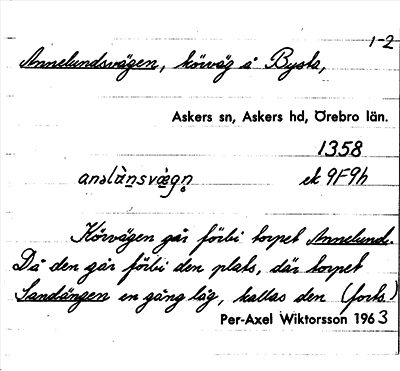 1-2
Annelundsvägen, körväg å Bysta,
Askers sn, Askers hd, Örebro län.
1358
anəlùnsvægn̥ ek 9F9h
Körvägen går förbi torpet Annelund.
Då den går förbi den plats, där torpet
Sandängen en gång låg, kallas den (forts.)
Per-Axel Wiktorsson 1963